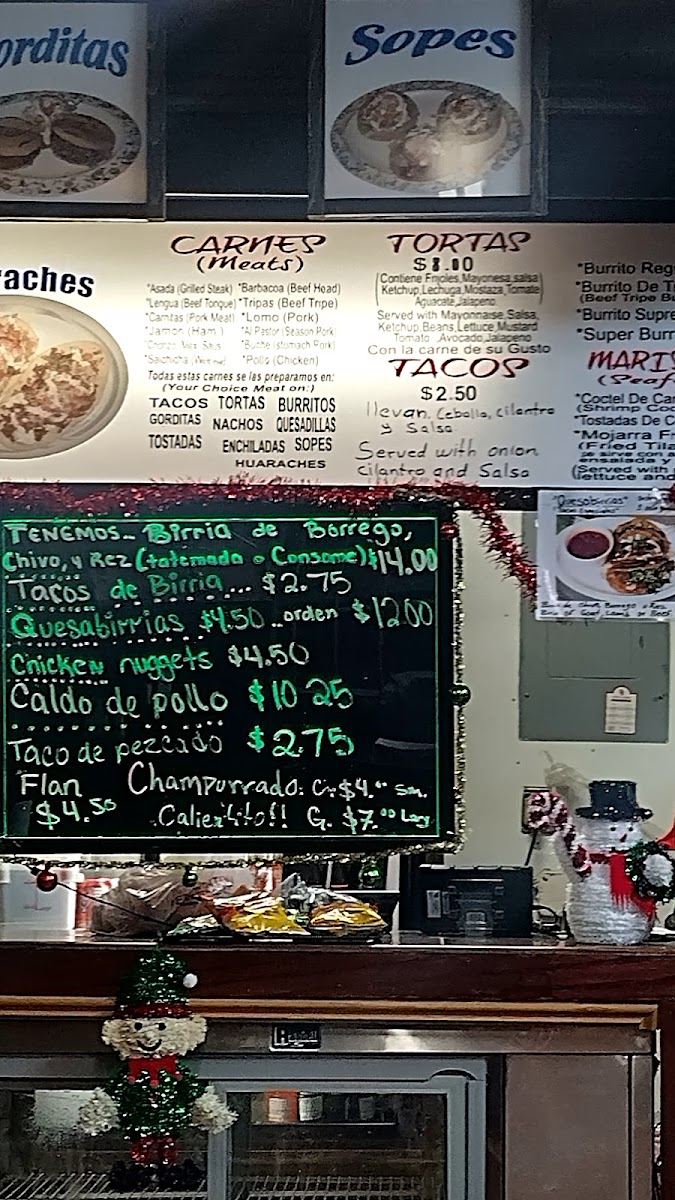 orditas
Sopes
raches
CARNES
(Meats)
*Asada (Grilled Steak) *Barbacoa (Beef Head)
*Lengua (Beef Tongue) *Tripas (Beef Tripe)
*Carnitas (Pork Meat) *Lomo (Pork)
*Jamon (Ham) *Al Pastor (Season Pork)
*Buche (stomach Pork)
*Salchicha *Pollo (Chicken)
Todas estas carnes se las preparamos en:
(Your Choice Meat on:)
TACOS TORTAS BURRITOS
GORDITAS NACHOS QUESADILLAS
TOSTADAS ENCHILADAS SOPES
HUARACHES
TORTAS
$8.00
(Contiene Frijoles,Mayonesa,salsa
Ketchup,Lechuga,Mostaza,Tomate
Aguacate,Jalapeno)
Served with Mayonnaise,Salsa,
Ketchup,Beans,Lettuce,Mustard
Tomato ,Avocado,Jalapeno
Con la carne de su Gusto
TACOS
$2.50
llevan. Cebolla, cilantro
y Salsa
Served with onion
cilantro and Salsa
*Burrito Reg
*Burrito De Tr
(Beef Tripe Bu
*Burrito Supre
*Super Burr
MARIS
(Seaf
*Coctel De Ca
(Shrimp Coc
*Tostadas De C
*Mojarra Fr
(Fried Tila
se sirve con a
ensalada y
(Served with
lettuce and
TENEMOS... Birria de Borrego,
Chivo, y Rez (tatemada o Consome) $14.00
Tacos de Birria... $2.75
Quesabirrias $4.50 ..orden $12.00
Chicken nuggets $4.50
Caldo de pollo $10 25
Taco de pezcado $2.75
Flan Champurrado: C. $4.00 Sm.
$4.50 Calientito!! G. $7.00 Larg
"Quesabirrias"